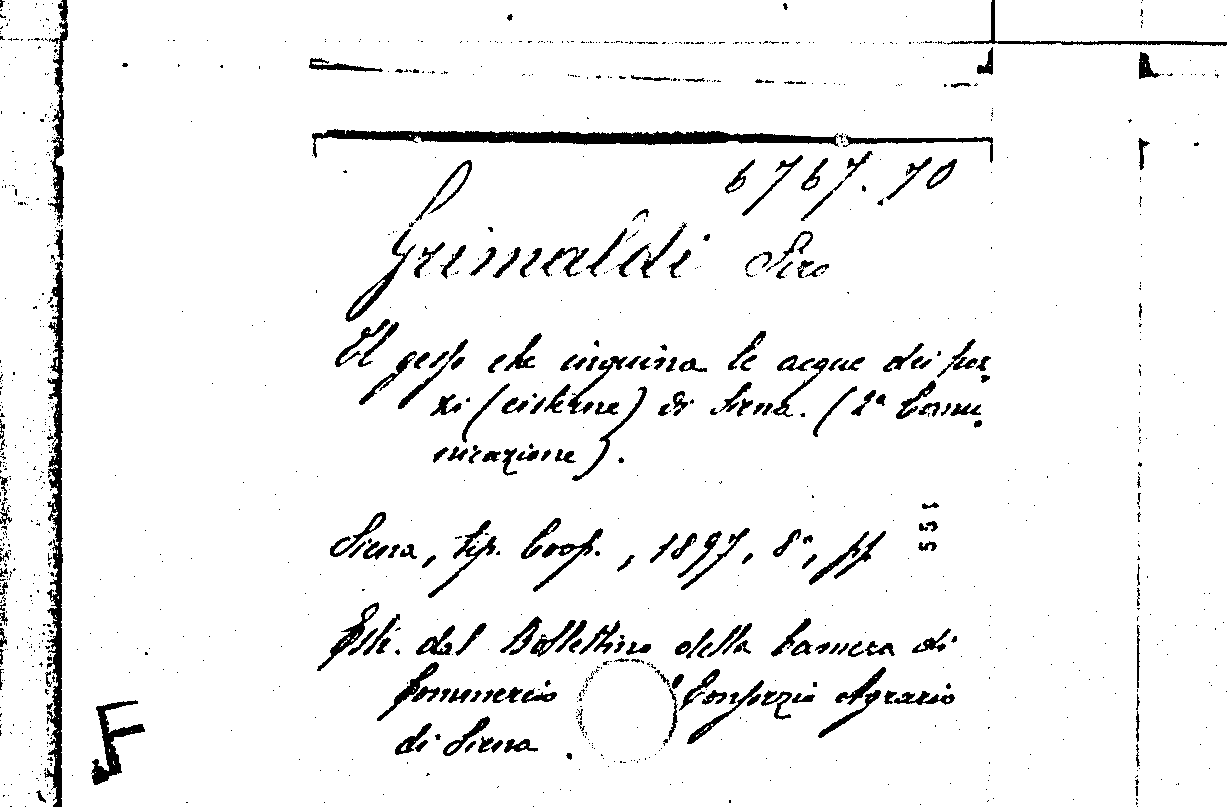 6767.70
Grimaldi Siro
Il gesso che inquina le acque dei poz-
zi (cisterne) di Siena. (2ª Comu-
nicazione).
Siena, tip. Coop., 1897, 8°, pp
551
Estr. dal Bollettino della Camera di
Commercio Consorzio Agrario
di Siena.
F